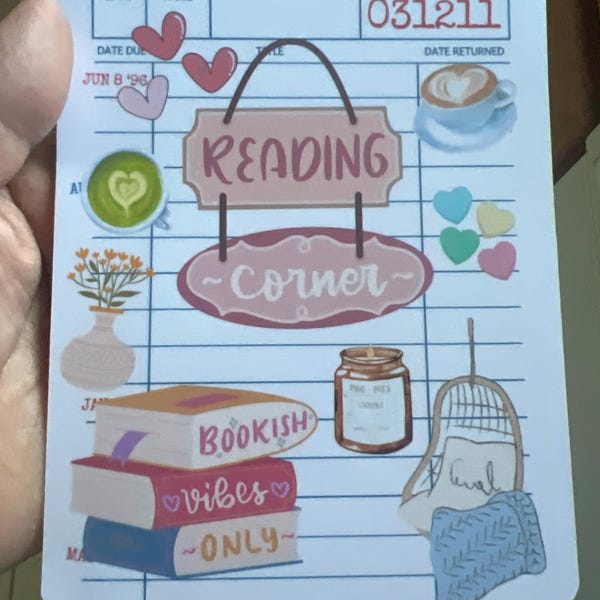 031211
DATE DUE
TITLE
DATE RETURNED
JUN 8 '96
READING
~ Corner ~
BOOKISH
vibes
~ ONLY ~